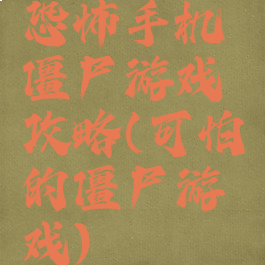 恐怖手机
僵尸游戏
攻略(可怕
的僵尸游
戏)